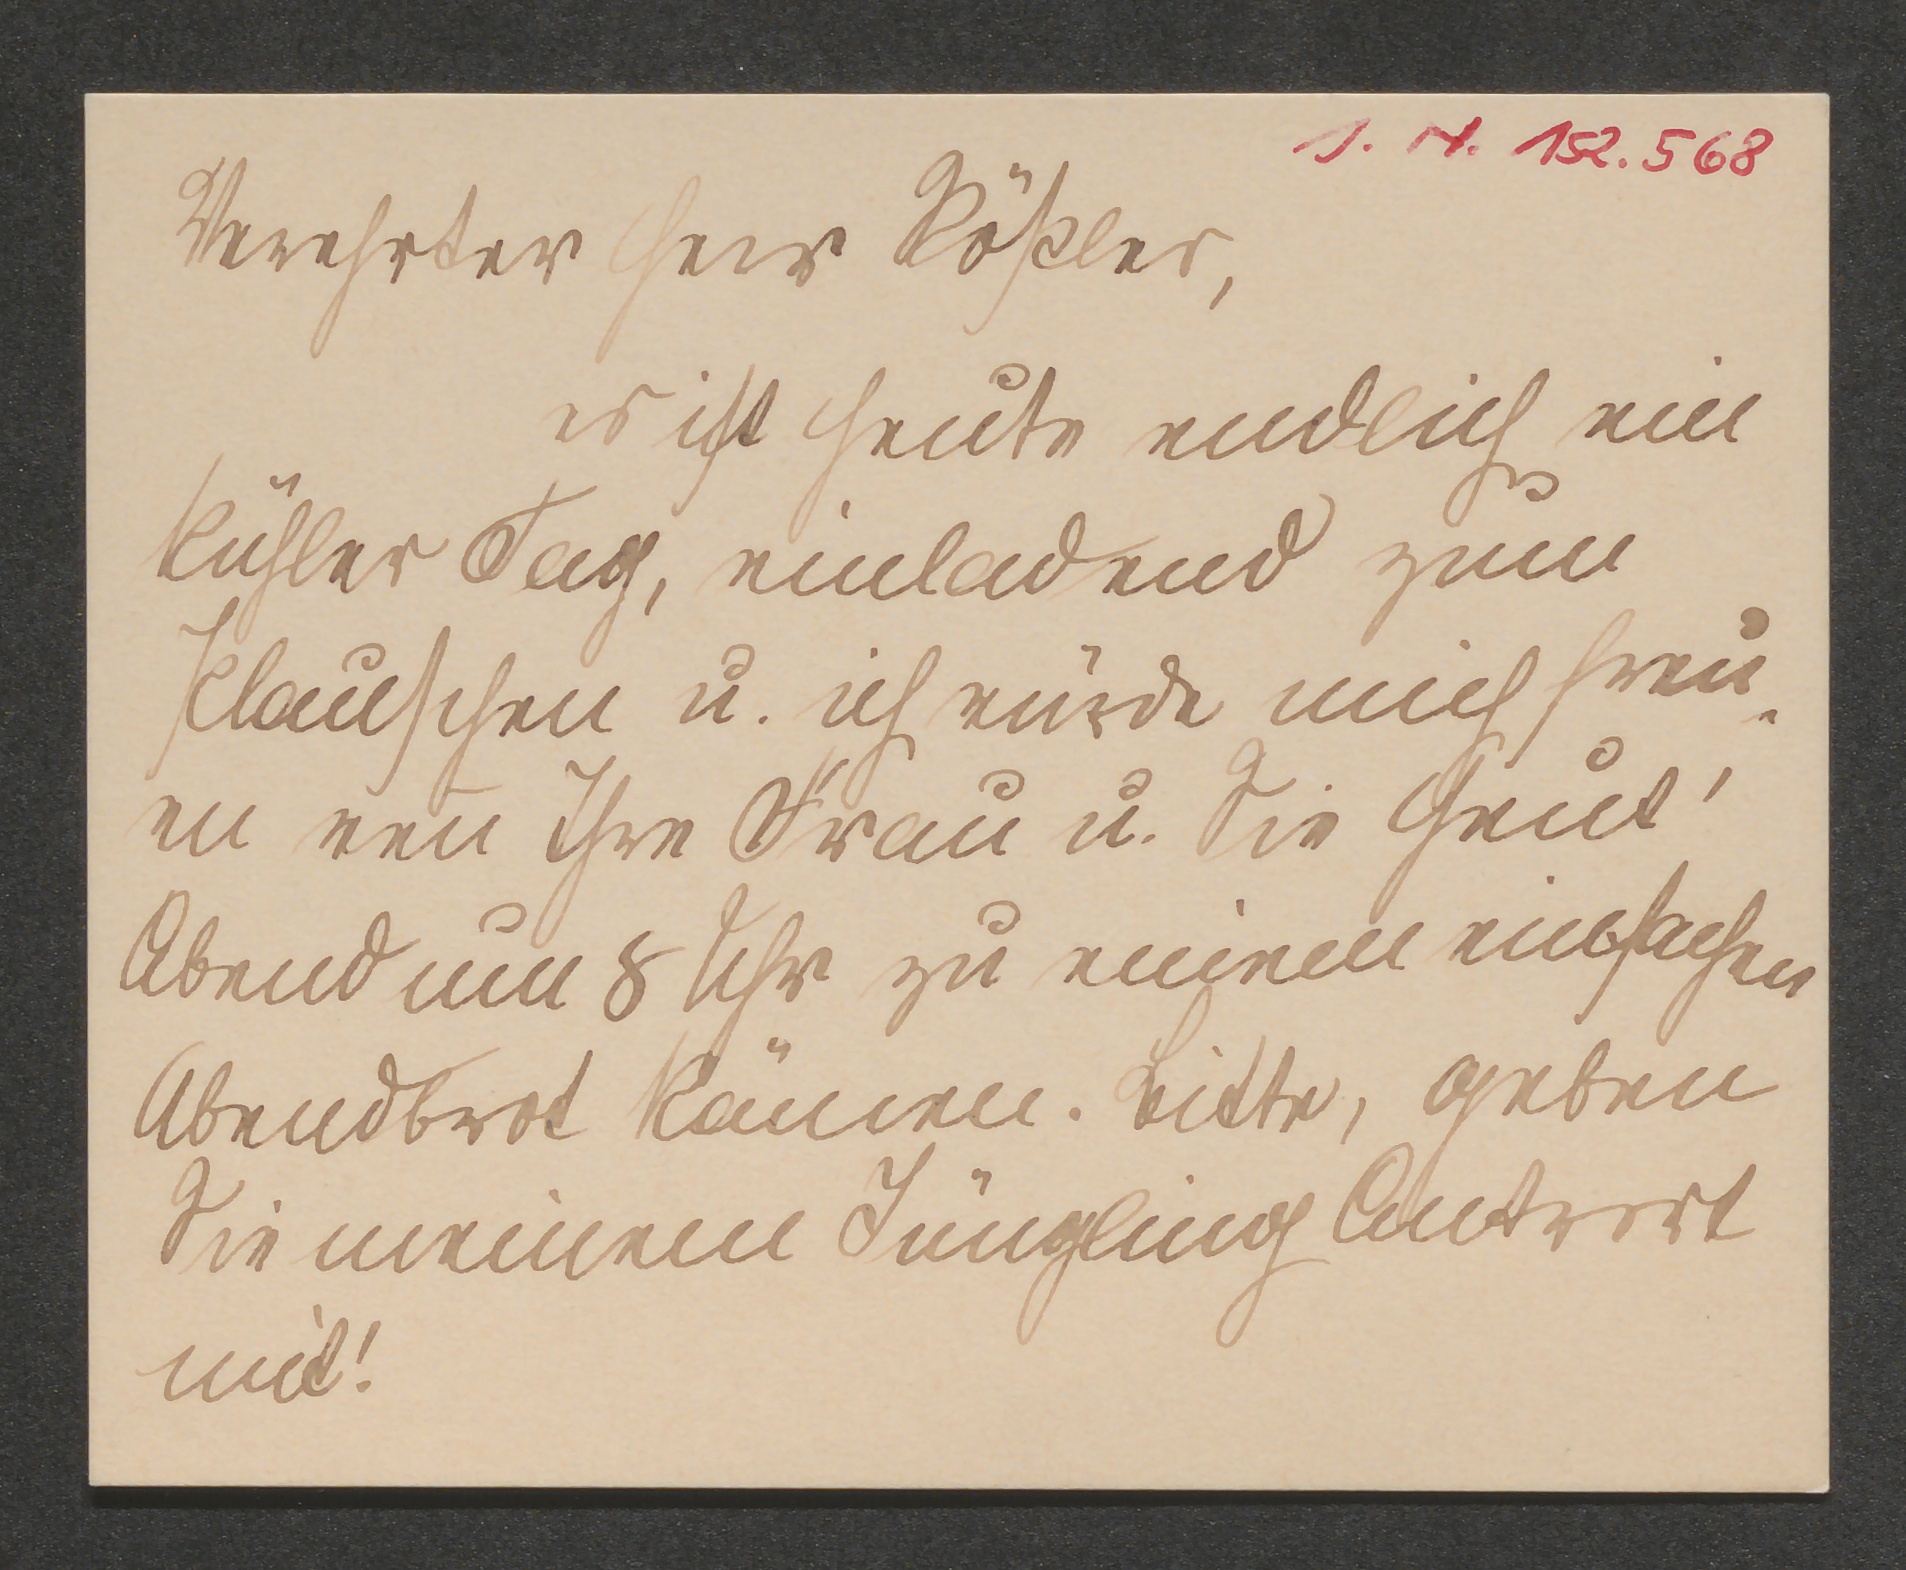 I. N. 152.568
Verehrter Herr Rößler,
es ist heute endlich ein
kühler Tag, einladend zum
Plauschen u. ich würde mich freu-
en wen Ihre Frau u. Sie heut'
Abend um 8 Uhr zu einem einfachen
Abendbrot kämen. Bitte, geben
Sie meinem Jüngling Antwort
mit!